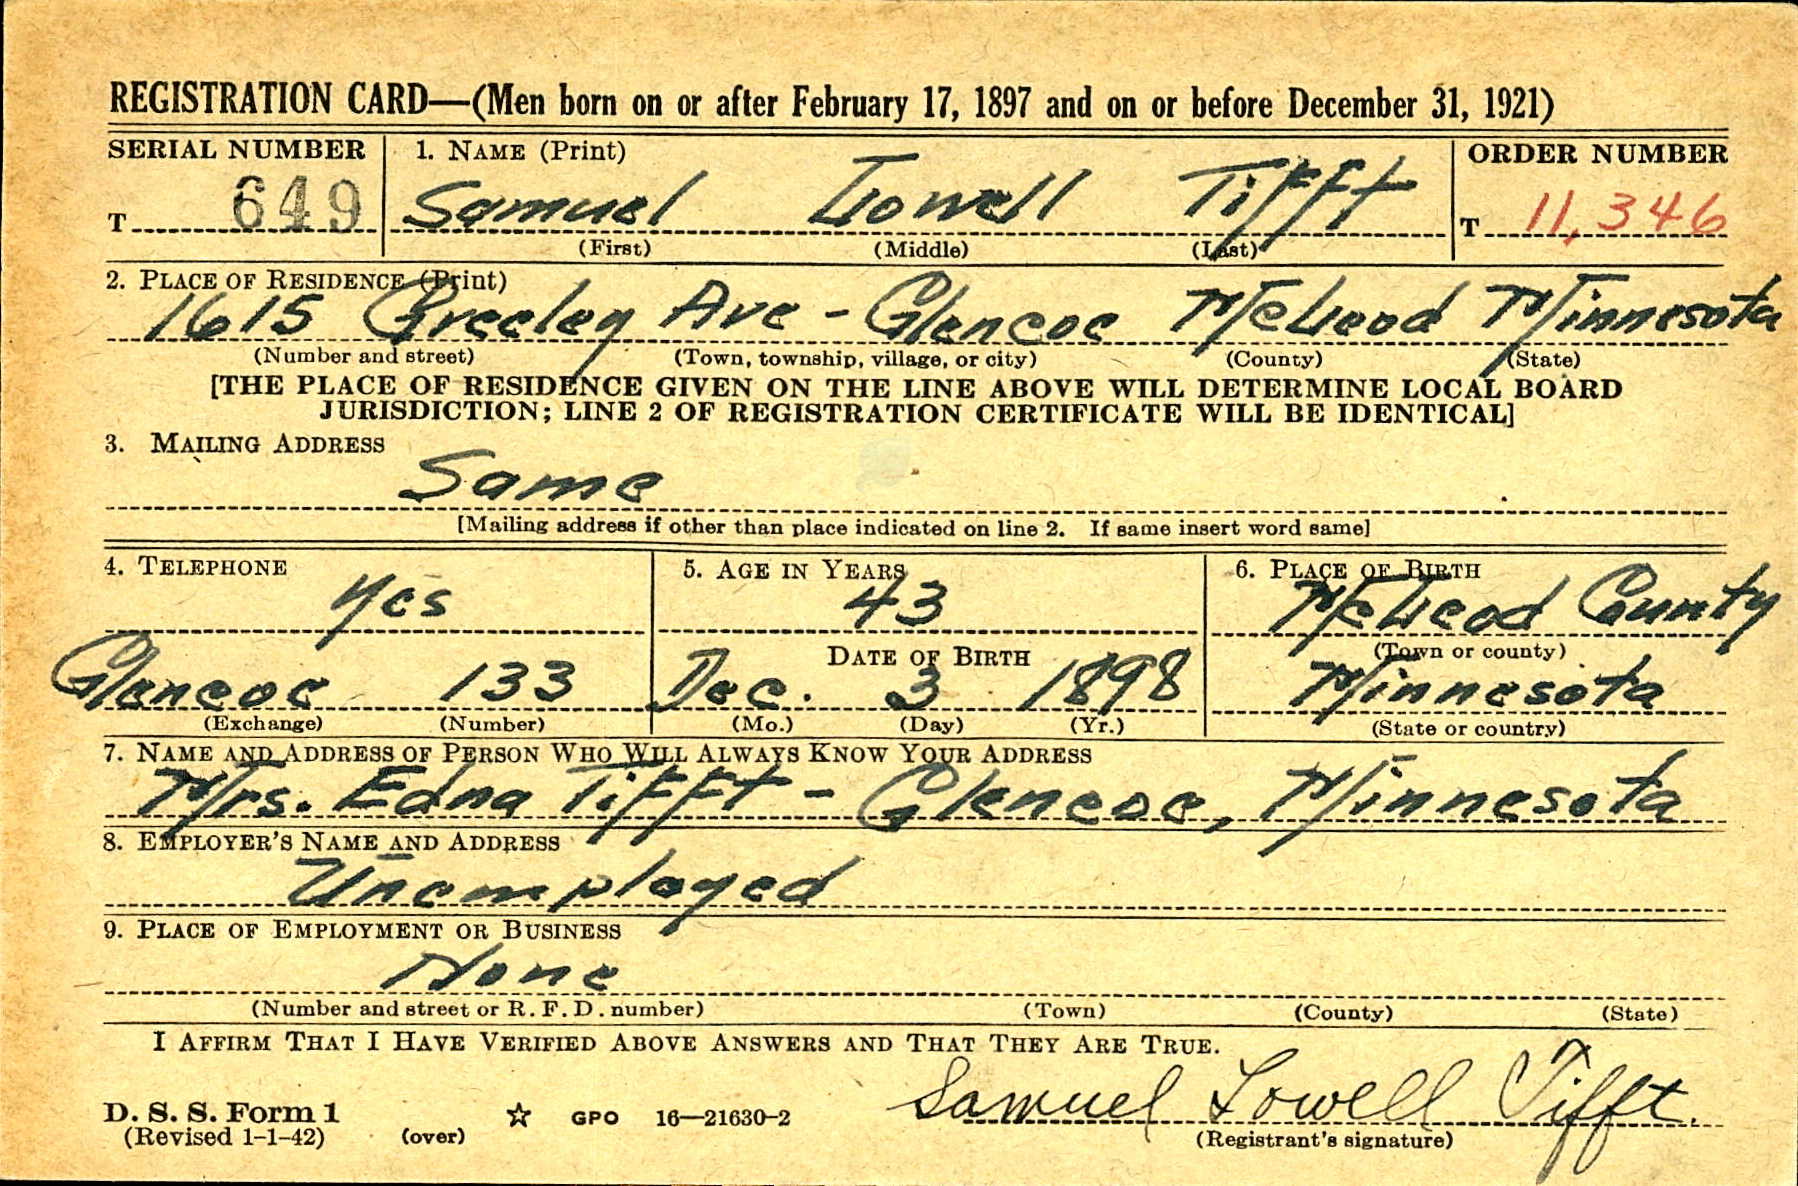 REGISTRATION CARD—(Men born on or after February 17, 1897 and on or before December 31, 1921)
SERIAL NUMBER 1. NAME (Print) ORDER NUMBER
T 649 Samuel Lowell Tifft T 11,346
(First) (Middle) (Last)
2. PLACE OF RESIDENCE (Print)
1615 Greeley Ave - Glencoe McLeod Minnesota
(Number and street) (Town, township, village, or city) (County) (State)
[THE PLACE OF RESIDENCE GIVEN ON THE LINE ABOVE WILL DETERMINE LOCAL BOARD
JURISDICTION; LINE 2 OF REGISTRATION CERTIFICATE WILL BE IDENTICAL]
3. MAILING ADDRESS
Same
[Mailing address if other than place indicated on line 2. If same insert word same]
4. TELEPHONE 5. AGE IN YEARS 6. PLACE OF BIRTH
Yes 43 McLeod County
DATE OF BIRTH (Town or county)
Glencoe 133 Dec. 3 1898 Minnesota
(Exchange) (Number) (Mo.) (Day) (Yr.) (State or country)
7. NAME AND ADDRESS OF PERSON WHO WILL ALWAYS KNOW YOUR ADDRESS
Mrs. Edna Tifft - Glencoe, Minnesota
8. EMPLOYER'S NAME AND ADDRESS
Unemployed
9. PLACE OF EMPLOYMENT OR BUSINESS
None
(Number and street or R. F. D. number) (Town) (County) (State)
I AFFIRM THAT I HAVE VERIFIED ABOVE ANSWERS AND THAT THEY ARE TRUE.
Samuel Lowell Tifft.
D. S. S. Form 1 ☆ GPO 16—21630-2
(Revised 1-1-42) (over) (Registrant's signature)